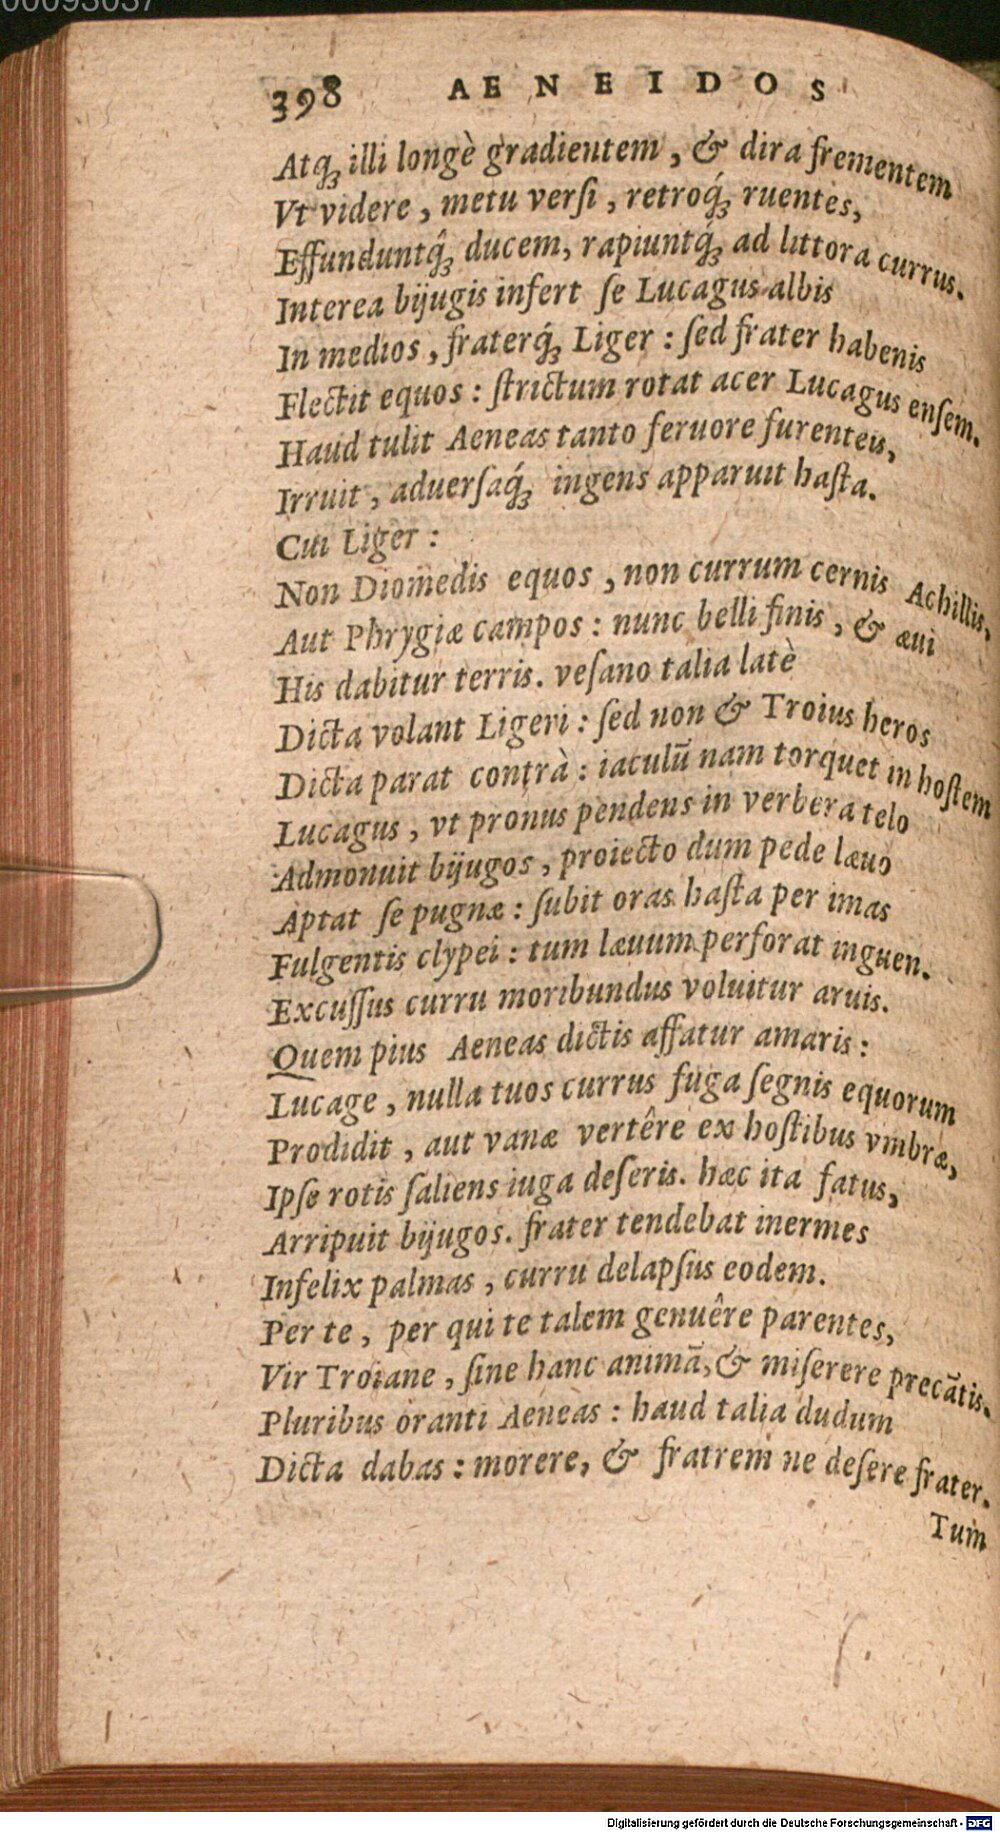 00093037
398 AENEIDOS
Atq́ꝫ illi longè gradientem, & dira frementem
Vt videre, metu verſi, retroq́ꝫ ruentes,
Effunduntq́ꝫ ducem, rapiuntq́ꝫ ad littora currus.
Interea bijugis infert ſe Lucagus albis
In medios, fraterq́ꝫ Liger: ſed frater habenis
Flectit equos: ſtrictum rotat acer Lucagus enſem.
Haud tulit Aeneas tanto feruore furenteis,
Irruit, aduerſaq́ꝫ ingens apparuit haſta.
Cui Liger:
Non Diomedis equos, non currum cernis Achillis,
Aut Phrygiæ campos: nunc belli finis, & æui
His dabitur terris. veſano talia latè
Dicta volant Ligeri: ſed non & Troius heros
Dicta parat contrà: iaculū nam torquet in hoſtem
Lucagus, vt pronus pendens in verbera telo
Admonuit bijugos, proiecto dum pede læuo
Aptat ſe pugnæ: ſubit oras haſta per imas
Fulgentis clypei: tum læuum perforat inguen.
Excuſſus curru moribundus voluitur aruis.
Quem pius Aeneas dictis affatur amaris:
Lucage, nulla tuos currus fuga ſegnis equorum
Prodidit, aut vanæ vertêre ex hoſtibus vmbræ,
Ipſe rotis ſaliens iuga deſeris. hæc ita fatus,
Arripuit bijugos. frater tendebat inermes
Infelix palmas, curru delapſus eodem.
Per te, per qui te talem genuêre parentes,
Vir Troiane, ſine hanc animā, & miſerere precātis.
Pluribus oranti Aeneas: haud talia dudum
Dicta dabas: morere, & fratrem ne deſere frater.
Tum
Digitalisierung gefördert durch die Deutsche Forschungsgemeinschaft - DFG